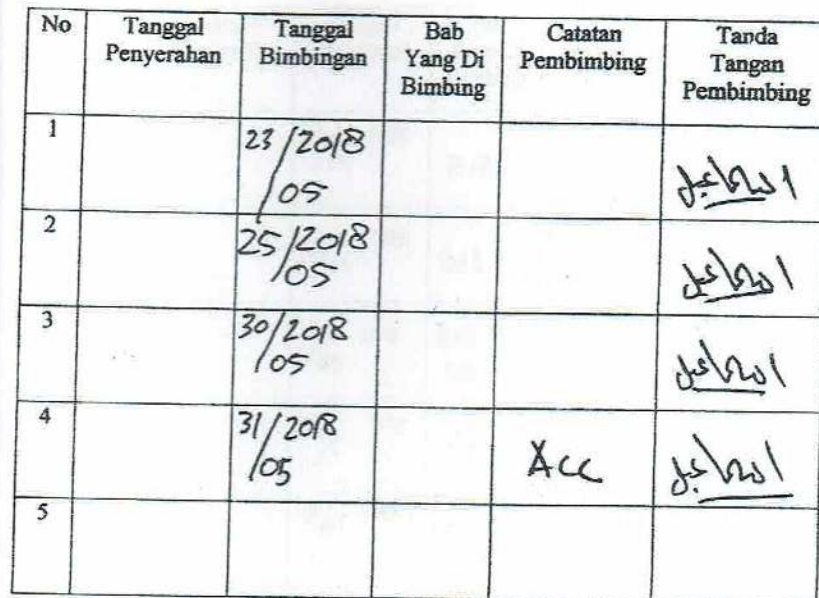 No Tanggal Penyerahan Tanggal Bimbingan Bab Yang Di Bimbing Catatan Pembimbing Tanda Tangan Pembimbing
1 23/2018
05
اسماعيل
2 25/2018
05
اسماعيل
3 30/2018
05
اسماعيل
4 31/2018
05
Acc اسماعيل
5